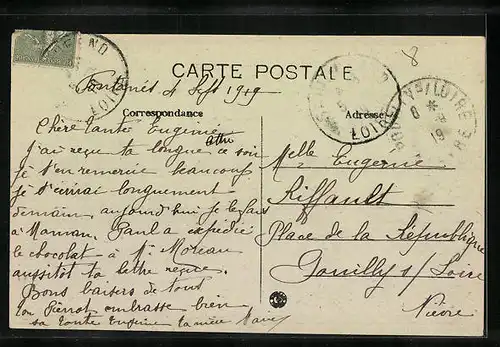 8
CARTE POSTALE
4 Sept 1919
Correspondance
Adresse
Chère tante Eugénie
J'ai reçu ta longue lettre ce soir
je t'en remercie beaucoup
je t'écrirai longuement
demain, aujourd'hui je le fais
à Maman. Paul a expédié
le chocolat à Mr Moreau
aussitôt ta lettre reçue.
Bons baisers de tous
ton Pierrot embrasse bien
sa tante Eugénie ta nièce
Melle Eugénie
Riffault
Place de la République
Pouilly s/ Loire
Nièvre
LOIRE
LOIRE
S/LOIRE
8 * 9
19